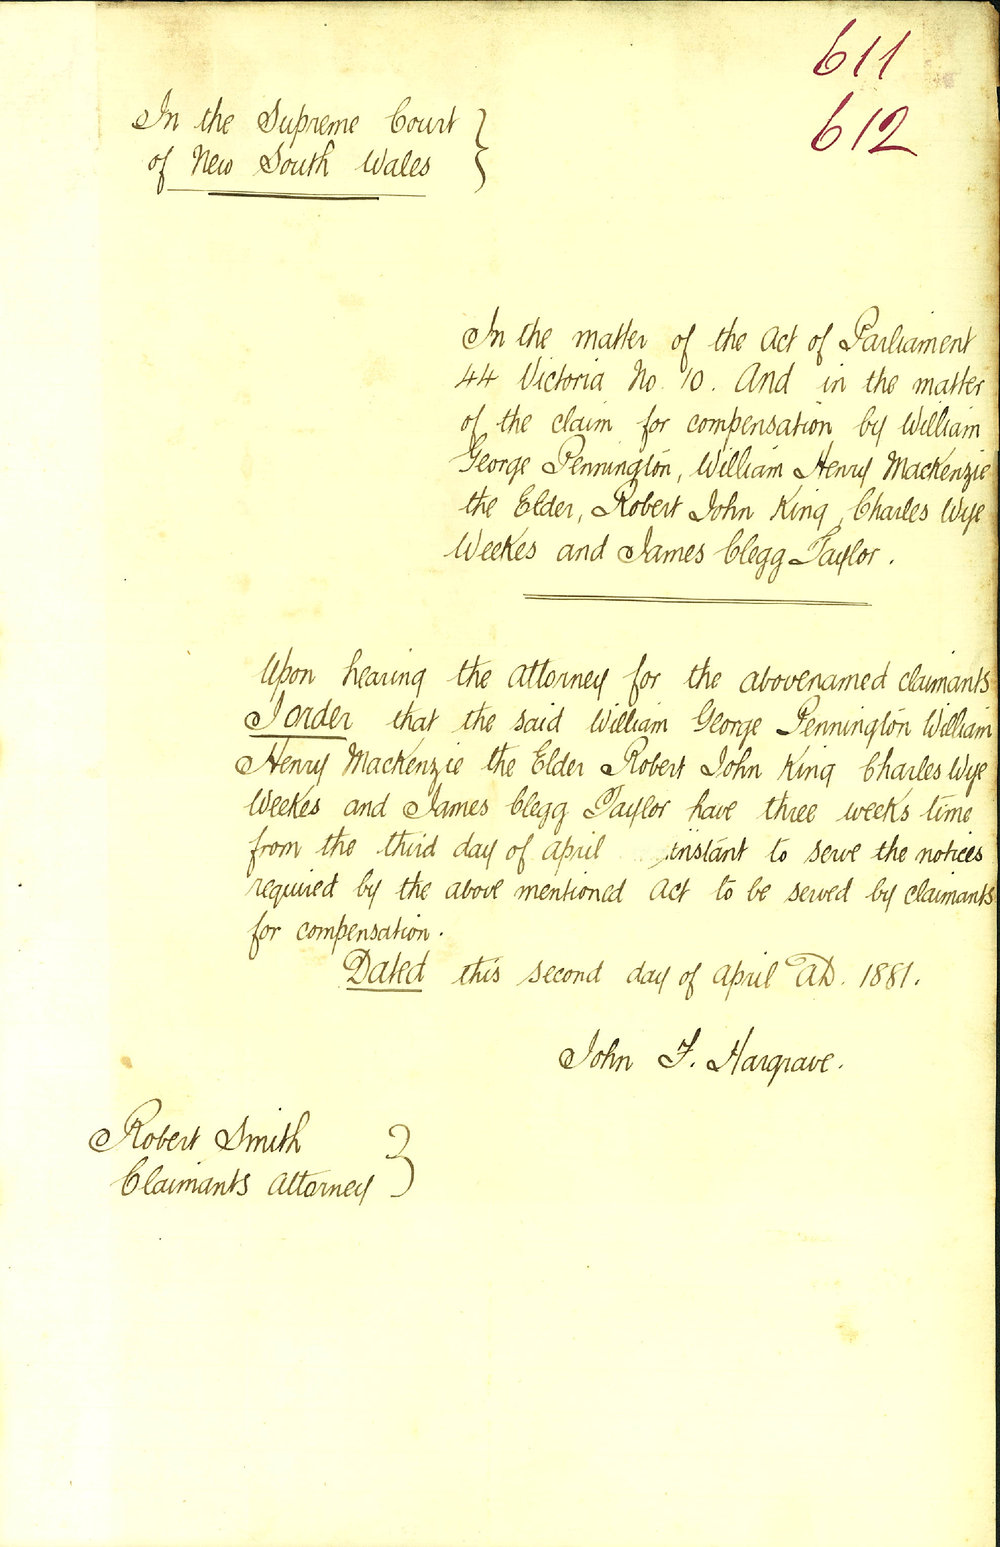 611
612
In the Supreme Court
of New South Wales
In the matter of the Act of Parliament
44 Victoria No. 10. And in the matter
of the claim for compensation by William
George Pennington, William Henry MacKenzie
the Elder, Robert John King, Charles Wye
Weekes and James Clegg Taylor.
Upon hearing the attorney for the abovenamed claimants
I order that the said William George Pennington William
Henry MacKenzie the Elder Robert John King Charles Wye
Weekes and James Clegg Taylor have three weeks time
from the third day of April instant to serve the notices
required by the above mentioned Act to be served by claimants
for compensation.
Dated this second day of April AD. 1881.
John F. Hargrave.
Robert Smith
Claimants Attorney